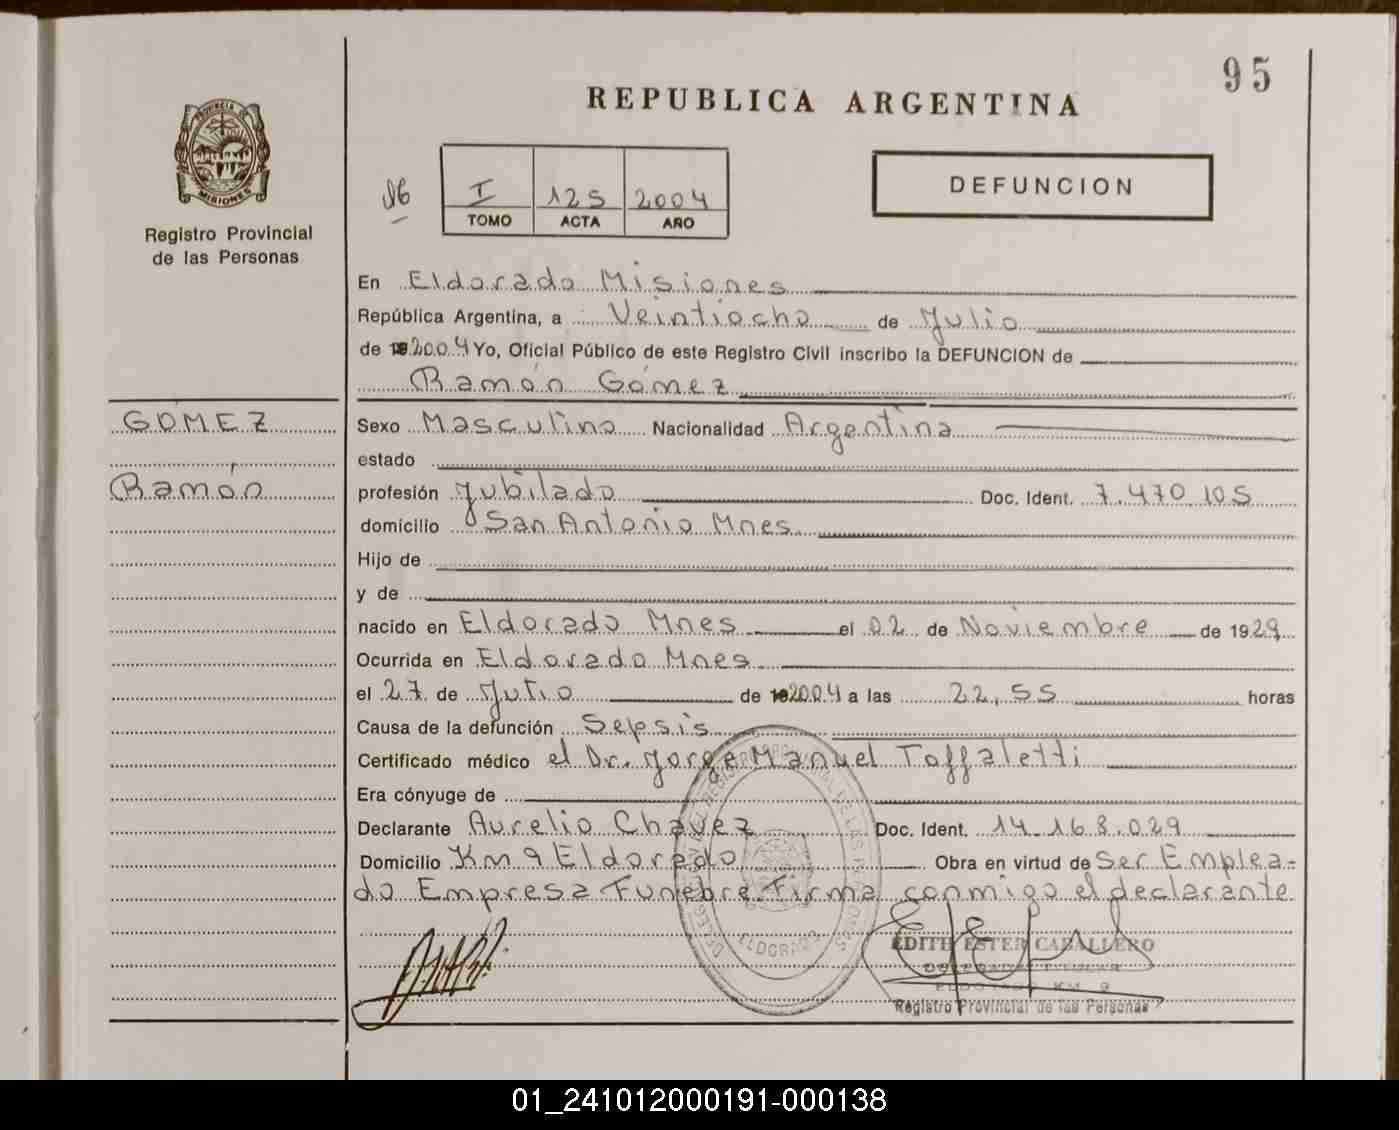 95
REPUBLICA ARGENTINA
DEFUNCION
I 125 2004
TOMO ACTA AÑO
PROVINCIA DE MISIONES
Registro Provincial
de las Personas
En Eldorado Misiones
República Argentina, a Veintiocho de Julio
de 192004 Yo, Oficial Público de este Registro Civil inscribo la DEFUNCION de
Ramón Gómez
GOMEZ
Ramón
Sexo Masculino Nacionalidad Argentina
estado
profesión Jubilado Doc. Ident. 7.470.105
domicilio San Antonio Mnes
Hijo de
y de
nacido en Eldorado Mnes el 02 de Noviembre de 1929
Ocurrida en Eldorado Mnes
el 27 de Julio de 192004 a las 22,55 horas
Causa de la defunción Sepsis
Certificado médico el Dr. Jorge Manuel Toffaletti
Era cónyuge de
Declarante Aurelio Chavez Doc. Ident. 14.168.029
Domicilio Km 9 Eldorado Obra en virtud de Ser Emplea-
do Empresa Funebre. Firma conmigo el declarante
ELDORADO
EDITH ESTER CABALLERO
DELEGADA TITULAR
ELDORADO KM. 9
Registro Provincial de las Personas
01_241012000191-000138